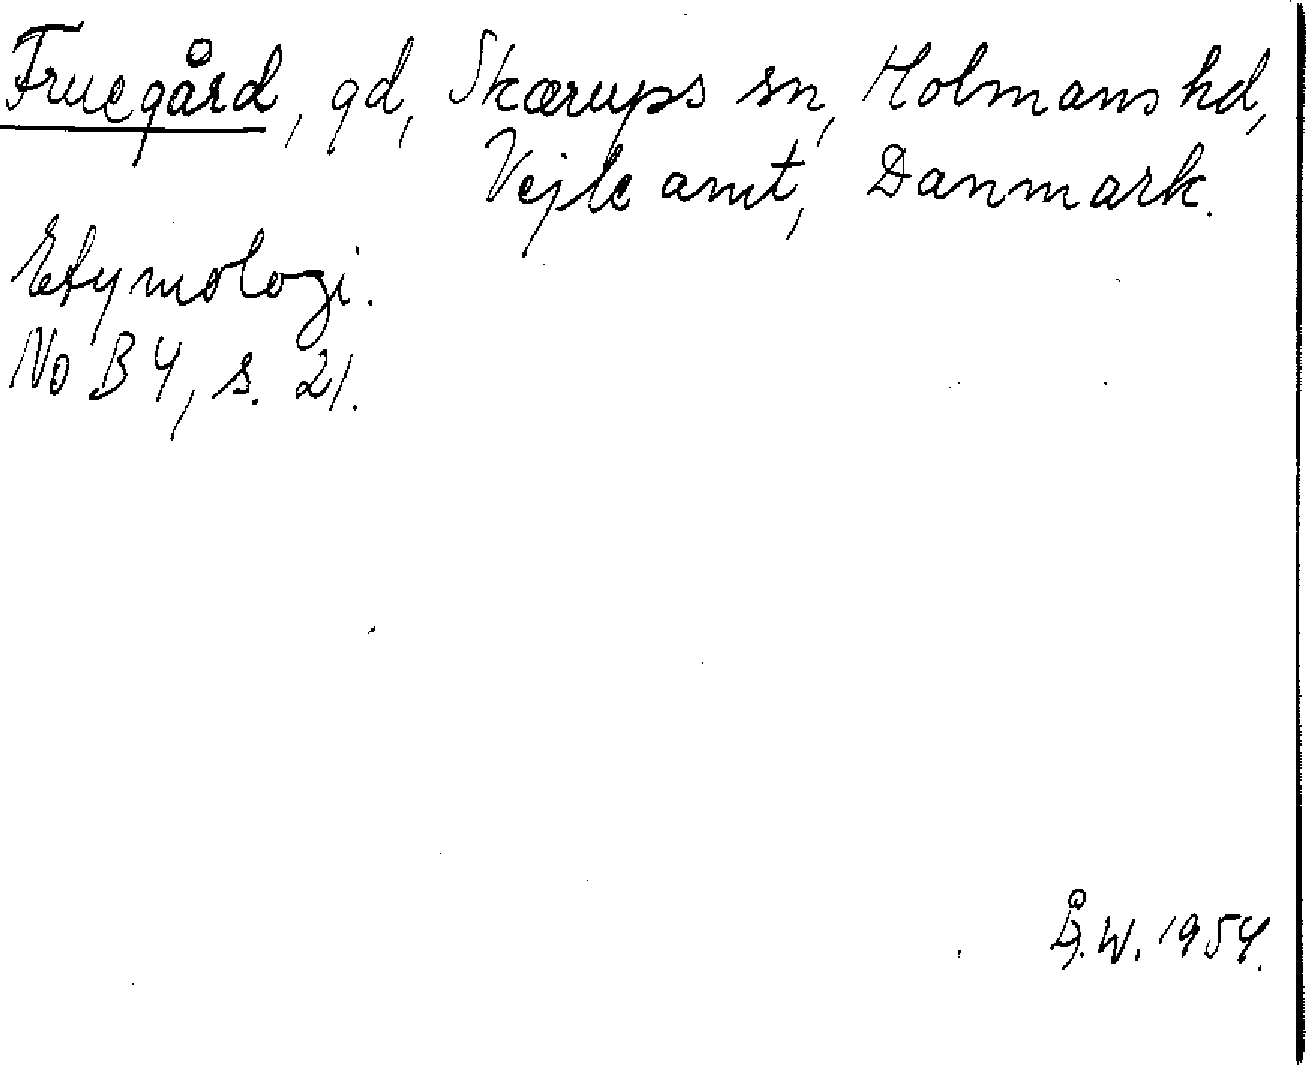 Fruegård, gd, Skærups sn, Holmans hd,
Vejle amt, Danmark.
Etymologi.
NoB 4, s. 21.
Å.W. 1954.